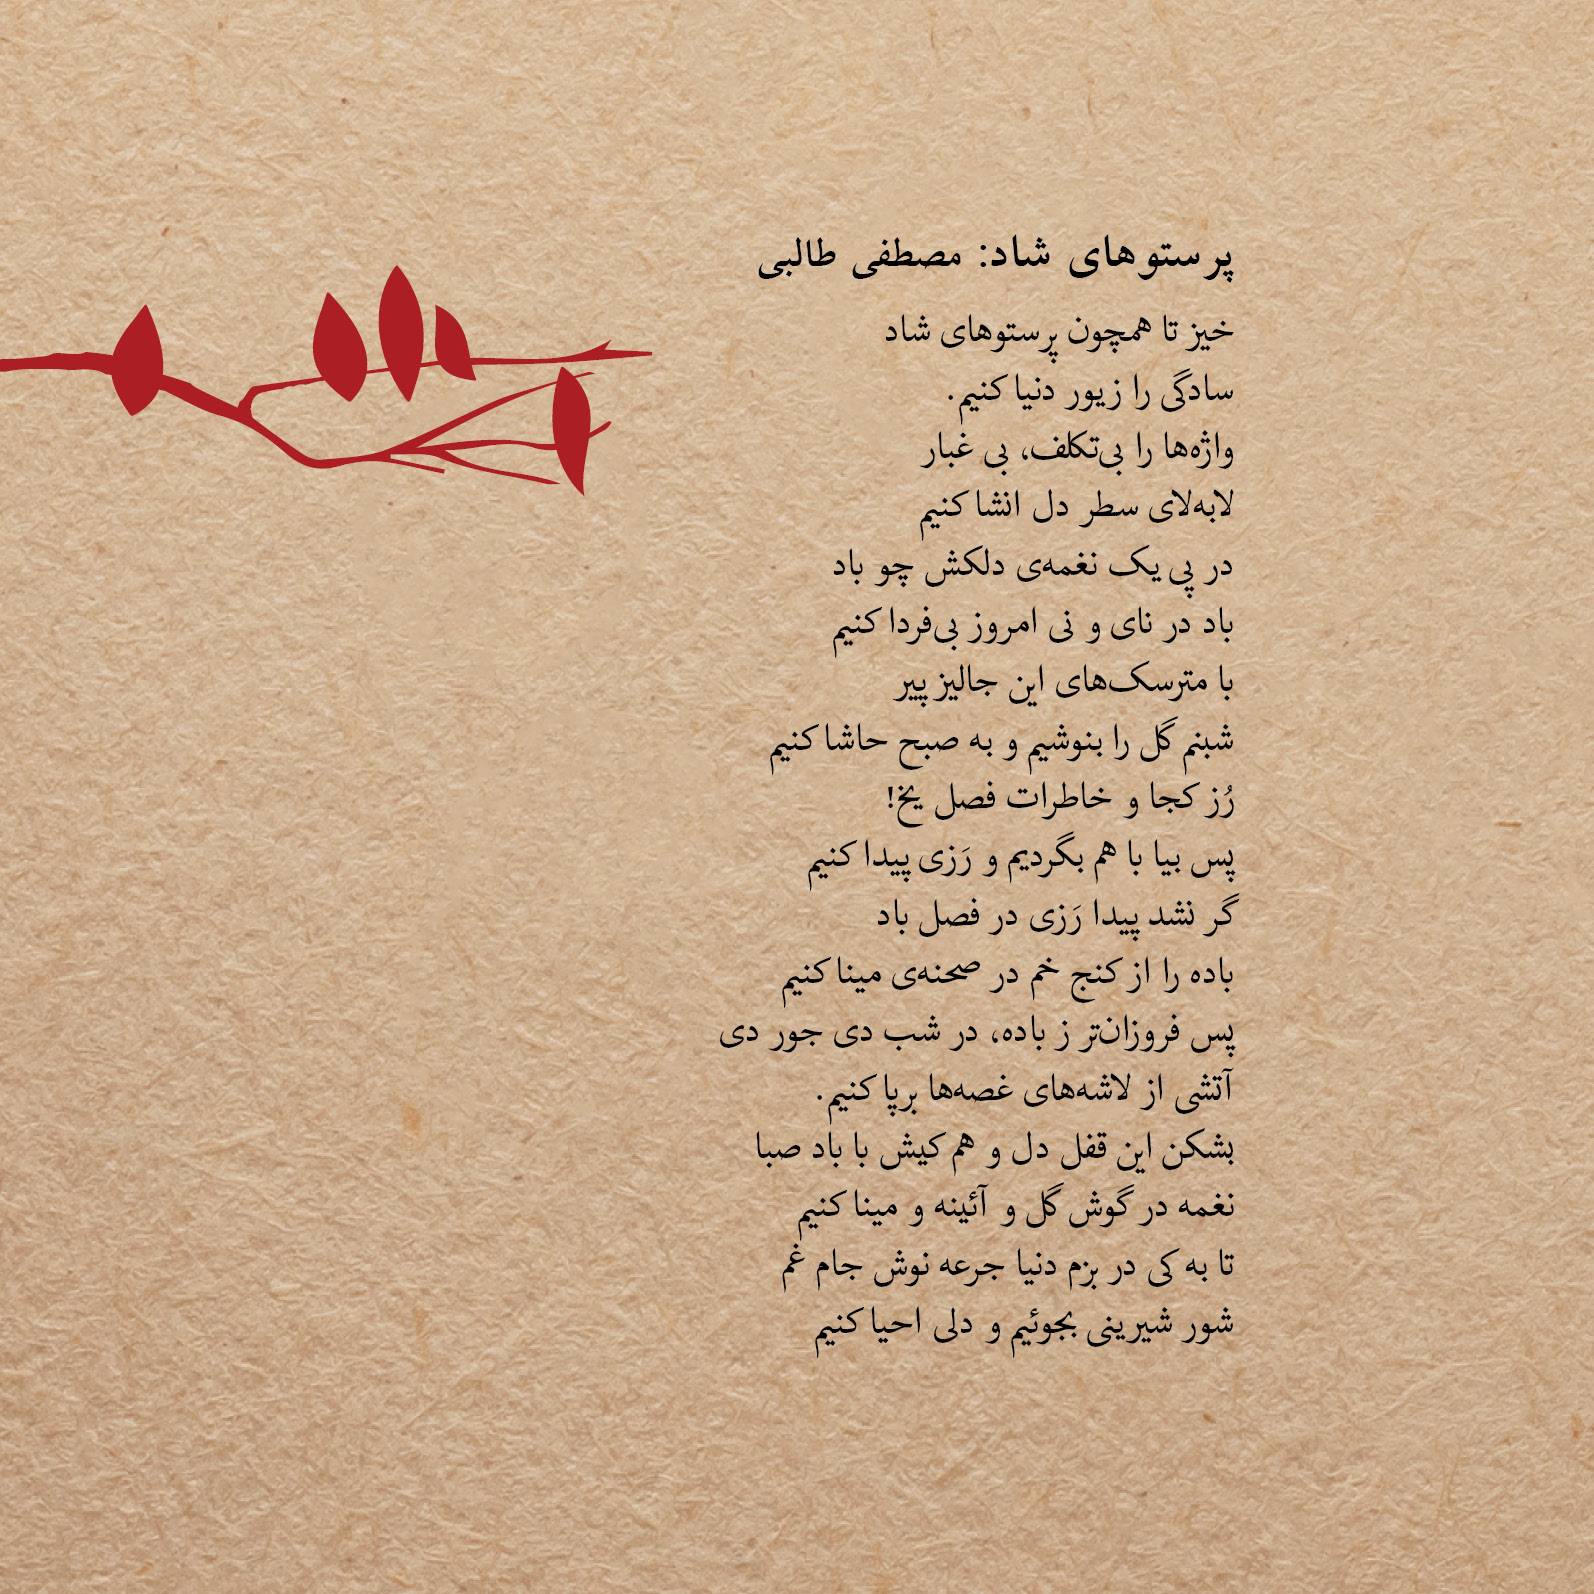 پرستوهای شاد: مصطفی طالبی
خیز تا همچون پرستوهای شاد
سادگی را زیور دنیا کنیم.
واژه‌ها را بی‌تکلف، بی غبار
لابه‌لای سطر دل انشا کنیم
در پی یک نغمه‌ی دلکش چو باد
باد در نای و نی امروز بی‌فردا کنیم
با مترسک‌های این جالیز پیر
شبنم گل را بنوشیم و به صبح حاشا کنیم
رُز کجا و خاطرات فصل یخ!
پس بیا با هم بگردیم و رَزی پیدا کنیم
گر نشد پیدا رَزی در فصل باد
باده را از کنج خم در صحنه‌ی مینا کنیم
پس فروزان‌تر ز باده، در شب دی جور دی
آتشی از لاشه‌های غصه‌ها برپا کنیم.
بشکن این قفل دل و هم کیش با باد صبا
نغمه در گوش گل و آئینه و مینا کنیم
تا به کی در بزم دنیا جرعه نوش جام غم
شور شیرینی بجوئیم و دلی احیا کنیم